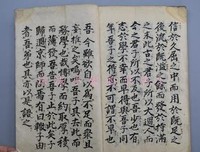 信於久屈之中而用於至足之
後流於既溢之餘而發於持滿
之末此古之人所以大過人而
今之君子所以不及也吾少也有
志於學不幸而早得與吾子同
年吾子之得亦不可謂不早也
吾今雖欲自以為不足而眾且
妄推之矣嗚呼吾子其去此而
務學也哉博觀而約取厚積
而薄發吾告吾子止於此矣子
歸過京師而問焉有曰轍子由
者吾弟也其亦以是語之